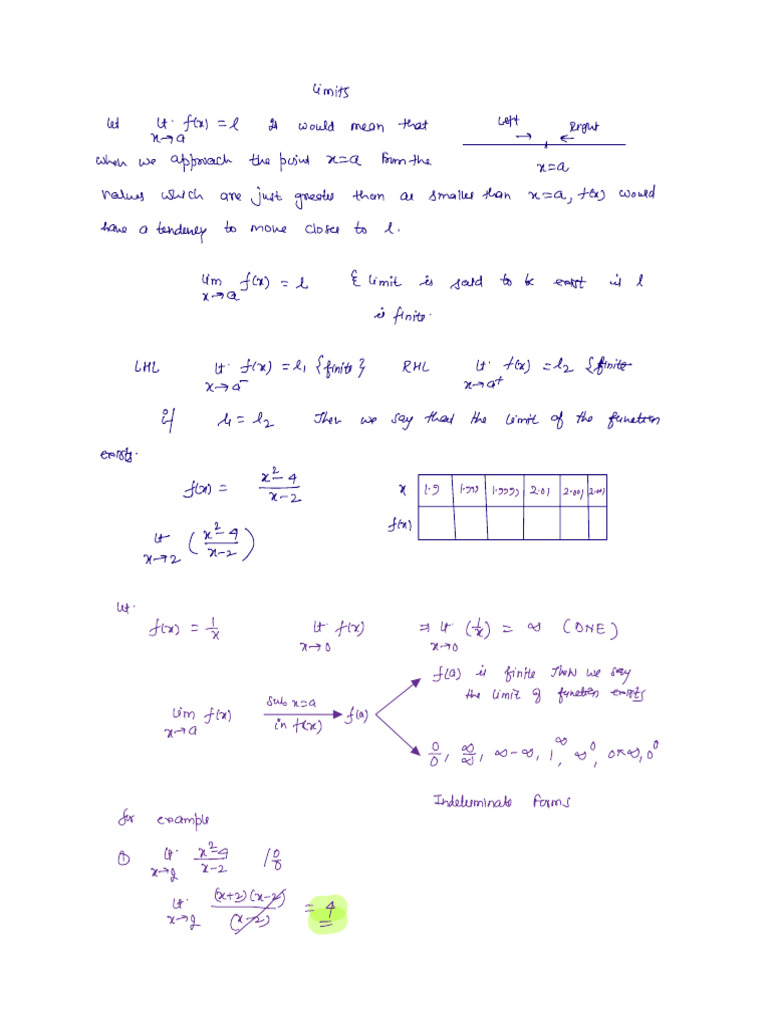 Limits
Let lt f(x) = l It would mean that
x→a
Left Right
x=a
when we approach the point x=a from the
values which are just greater than or smaller than x=a, f(x) would
have a tendency to move closer to l.
lim f(x) = l & limit is said to be exist is l
x→a
is finite.
LHL lt f(x) = l₁ {finite} RHL lt f(x) = l₂ {finite
x→a⁻ x→a⁺
if l₁ = l₂ Then we say that the limit of the function
exists.
f(x) = (x²-4)/(x-2)
x 1.9 1.999 1.9999 2.01 2.001 2.001
f(x)
lt ((x²-4)/(x-2))
x→2
let
f(x) = 1/x lt f(x) ⇒ lt (1/x) = ∞ (DNE)
x→0 x→0
f(a) is finite then we say
the limit of function exists
lim f(x) sub x=a in f(x) f(a)
x→a
0/0, ∞/∞, ∞-∞, 1^∞, ∞⁰, 0×∞, 0⁰
Indeterminate forms
for example
① lt (x²-4)/(x-2) 10/0
x→2
lt (x+2)(x-2)/(x-2) = 4
x→2